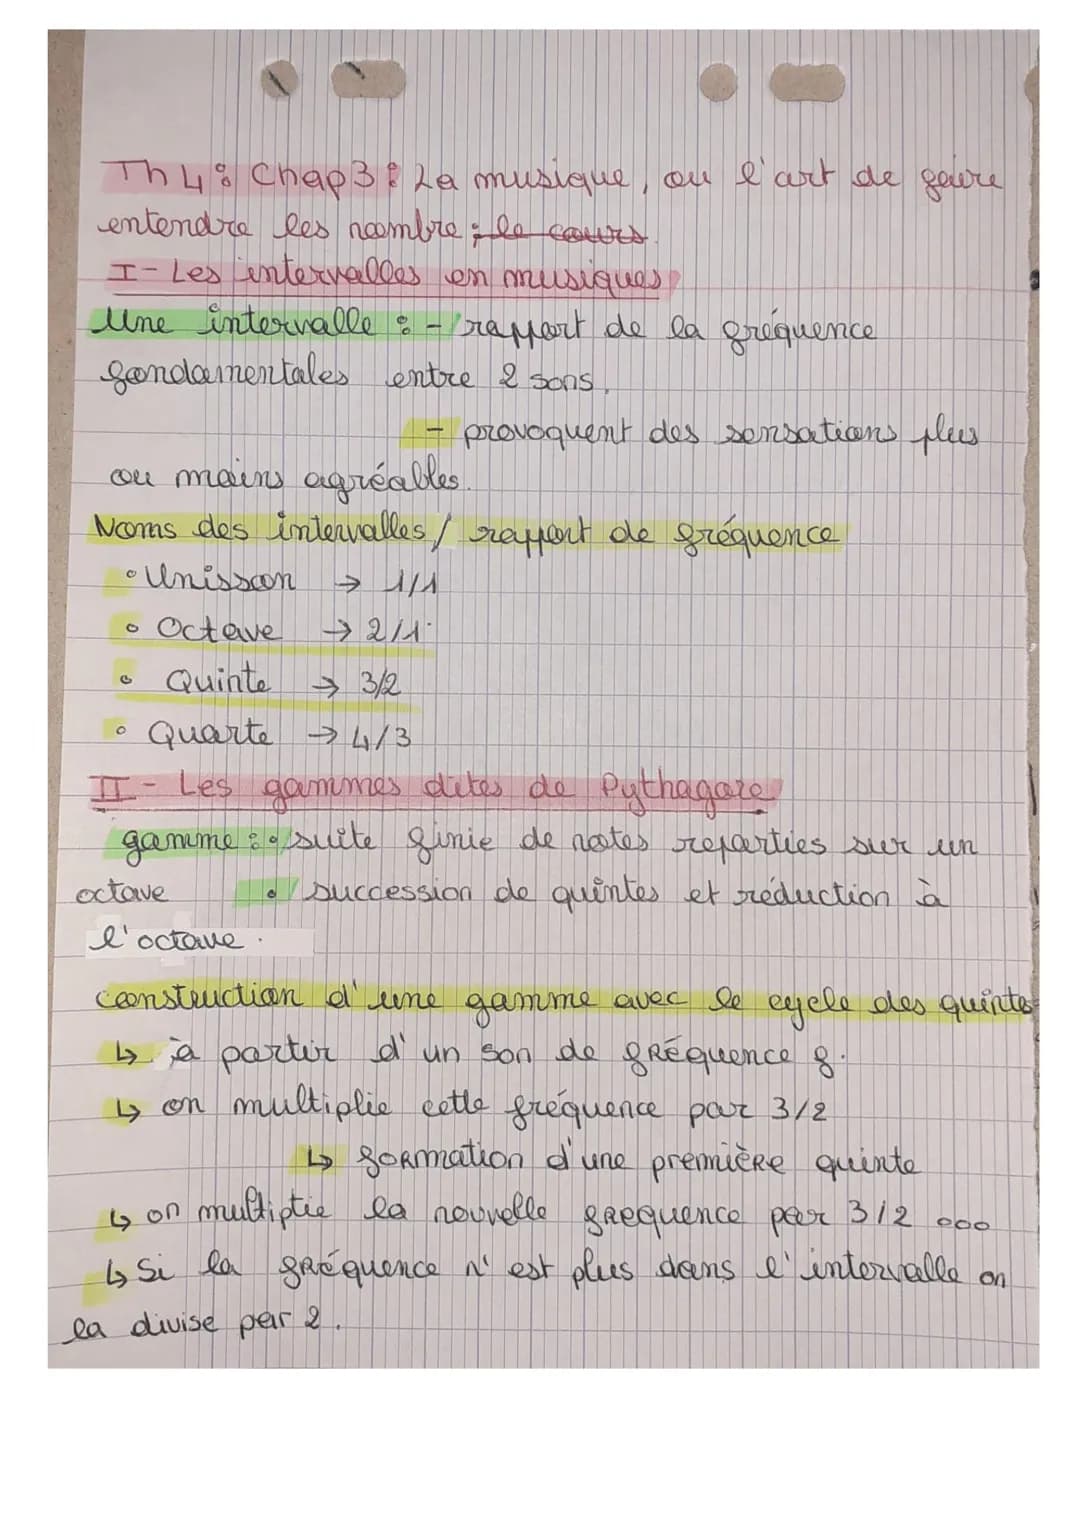 Th 4 : Chap 3 : La musique, ou l'art de faire
entendre les nombre ; le cours
I - Les intervalles en musiques
Une intervalle : - rapport de la fréquence
fondamentales entre 2 sons.
- provoquent des sensations plus
ou moins agréables.
Noms des intervalles / rapport de fréquence
• Unisson → 1/1
• Octave → 2/1
• Quinte → 3/2
• Quarte → 4/3
II - Les gammes dites de Pythagore
gamme : • suite finie de notes reparties sur un
octave • succession de quintes et réduction à
l'octave.
construction d'une gamme avec le cycle des quintes
↳ à partir d'un son de fréquence f.
↳ on multiplie cette fréquence par 3/2
↳ formation d'une première quinte
↳ on multiplie la nouvelle frequence par 3/2 ...
↳ Si la fréquence n'est plus dans l'intervalle on
la divise par 2.